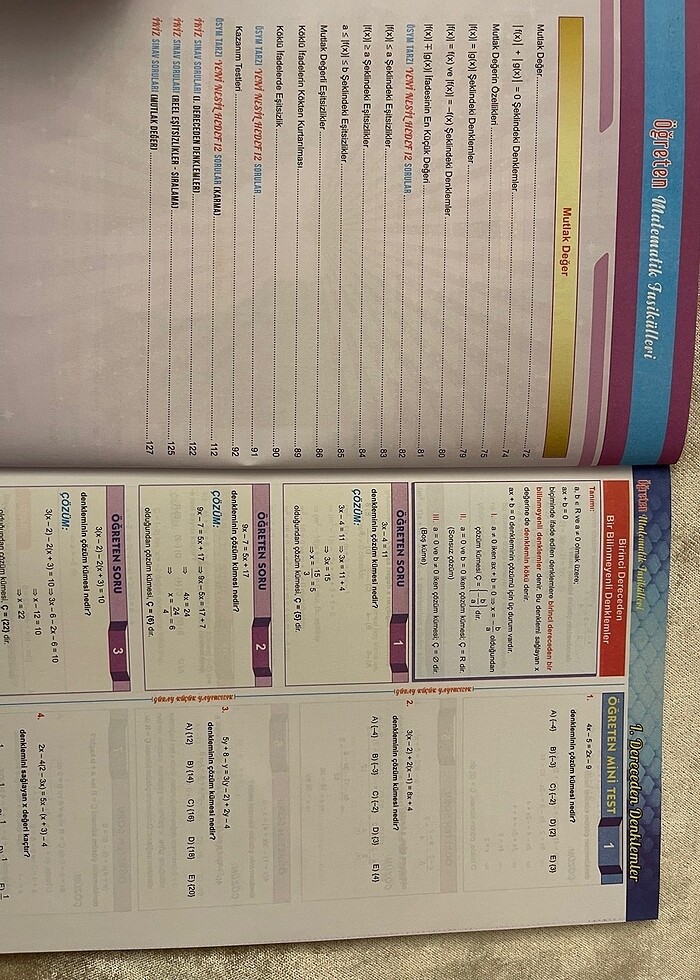 Öğreten Matematik Fasikülleri
Mutlak Değer
Mutlak Değer 72
|f(x)| + |g(x)| = 0 Şeklindeki Denklemler 74
Mutlak Değerin Özellikleri 75
|f(x)| = |g(x)| Şeklindeki Denklemler 79
|f(x)| = f(x) ve |f(x)| = –f(x) Şeklindeki Denklemler 80
|f(x)| ∓ |g(x)| İfadesinin En Küçük Değeri 81
ÖSYM TARZI YENİ NESİL HEDEF 12 SORULAR 82
|f(x)| ≤ a Şeklindeki Eşitsizlikler 83
|f(x)| ≥ a Şeklindeki Eşitsizlikler 84
a ≤ |f(x)| ≤ b Şeklindeki Eşitsizlikler 85
Mutlak Değerli Eşitsizlikler 86
Köklü İfadelerin Kökten Kurtarılması 89
Köklü İfadelerde Eşitsizlik 90
ÖSYM TARZI YENİ NESİL HEDEF 12 SORULAR 91
Kazanım Testleri 92
ÖSYM TARZI YENİ NESİL HEDEF 12 SORULAR (KARMA) 112
İKİZ SINAV SORULARI (I. DERECEDEN DENKLEMLER) 122
İKİZ SINAV SORULARI (REEL EŞİTSİZLİKLER - SIRALAMA) 125
İKİZ SINAV SORULARI (MUTLAK DEĞER) 127
Öğreten Matematik Fasikülleri
I. Dereceden Denklemler
Birinci Dereceden
Bir Bilinmeyenli Denklemler
Tanım:
a, b ∈ R ve a ≠ 0 olmak üzere,
ax + b = 0
biçiminde ifade edilen denklemlere birinci dereceden bir
bilinmeyenli denklemler denir. Bu denklemi sağlayan x
değerine de denklemin kökü denir.
ax + b = 0 denkleminin çözümü için üç durum vardır.
I. a ≠ 0 iken ax + b = 0 ⇒ x = –b/a olduğundan
çözüm kümesi Ç = {–b/a} dır.
II. a = 0 ve b = 0 iken çözüm kümesi, Ç = R dir.
(Sonsuz çözüm)
III. a = 0 ve b ≠ 0 iken çözüm kümesi, Ç = ∅ dir.
(Boş küme)
ÖĞRETEN SORU 1
3x – 4 = 11
denkleminin çözüm kümesi nedir?
ÇÖZÜM:
3x – 4 = 11 ⇒ 3x = 11 + 4
⇒ 3x = 15
⇒ x = 15/3 = 5
olduğundan çözüm kümesi, Ç = {5} dir.
ÖĞRETEN SORU 2
9x – 7 = 5x + 17
denkleminin çözüm kümesi nedir?
ÇÖZÜM:
9x – 7 = 5x + 17 ⇒ 9x – 5x = 17 + 7
⇒ 4x = 24
⇒ x = 24/4 = 6
olduğundan çözüm kümesi, Ç = {6} dır.
ÖĞRETEN SORU 3
3(x – 2) – 2(x + 3) = 10
denkleminin çözüm kümesi nedir?
ÇÖZÜM:
3(x – 2) – 2(x + 3) = 10 ⇒ 3x – 6 – 2x – 6 = 10
⇒ x – 12 = 10
⇒ x = 22
olduğundan çözüm kümesi, Ç = {22} dir.
GÜRAY KÜÇÜK YAYINCILIK
GÜRAY KÜÇÜK YAYINCILIK
ÖĞRETEN MİNİ TEST 1
1. 4x – 5 = 2x – 9
denkleminin çözüm kümesi nedir?
A) {–4} B) {–3} C) {–2} D) {2} E) {3}
2. 3(x – 2) + 2(x – 1) = 8x + 4
denkleminin çözüm kümesi nedir?
A) {–4} B) {–3} C) {–2} D) {3} E) {4}
3. 5y + 8 – y = 3(y – 2) + 2y – 4
denkleminin çözüm kümesi nedir?
A) {12} B) {14} C) {16} D) {18} E) {20}
4. 2x – 4(2 – 3x) = 5x – (x + 3) – 4
denklemini sağlayan x değeri kaçtır?